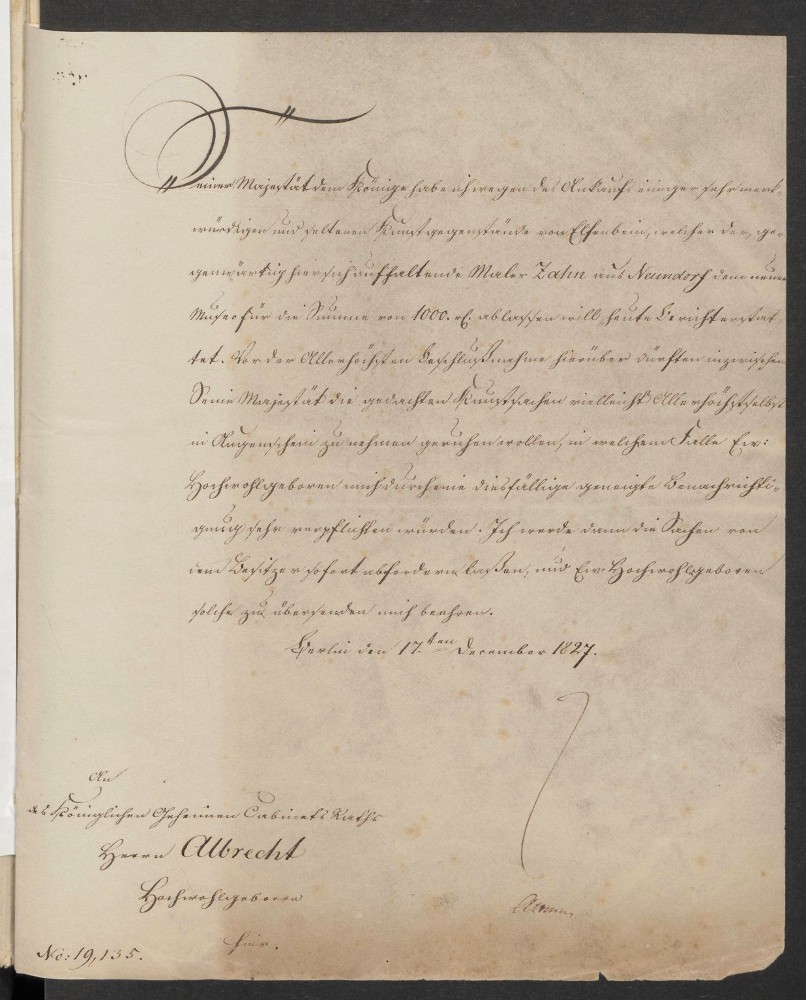 Seiner Majestät dem Könige habe ich wegen des Ankaufs einiger sehr merk-
würdigen und seltenen Kunstgegenstände von Elfenbein, welcher der, ge-
genwärtig hier sich aufhaltende Maler Zahn aus Neundorf dem neuen
Museo für die Summe von 1000. rf. ablassen will, heute Bericht erstat-
tet. Vor der Allerhöchsten Beschlußnahme hierüber dürften inzwischen
Seine Majestät die gedachten Kunstsachen vielleicht Allerhöchstselbst
in Augenschein zu nehmen geruhen wollen, in welchem Falle Ew:
Hochwohlgeboren mich durch eine diesfällige geneigte Benachrichti-
gung sehr verpflichten würden. Ich werde dann die Sachen von
dem Besitzer sofort abfordern laßen, und Ew. Hochwohlgeboren
solche zu übersenden mich beehren.
Berlin den 17ten December 1827.
An
des Königlichen Geheimen Cabinets Raths
Herrn Albrecht
Hochwohlgeboren
hier.
No: 19,135.